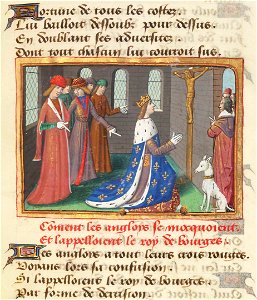 Fortune de tous les costez
Lui bailloit dessoubz pour dessus.
En doublant ses adversitez
Dont tout chascun lui couroit sus.
Coment les anglois se mocquoient
Et lappelloient le roy de bourges.
Les anglois a leurs trois rouges.
Donans lors sa confusion
Si lappelloient le roy de bourges
Par forme de derision